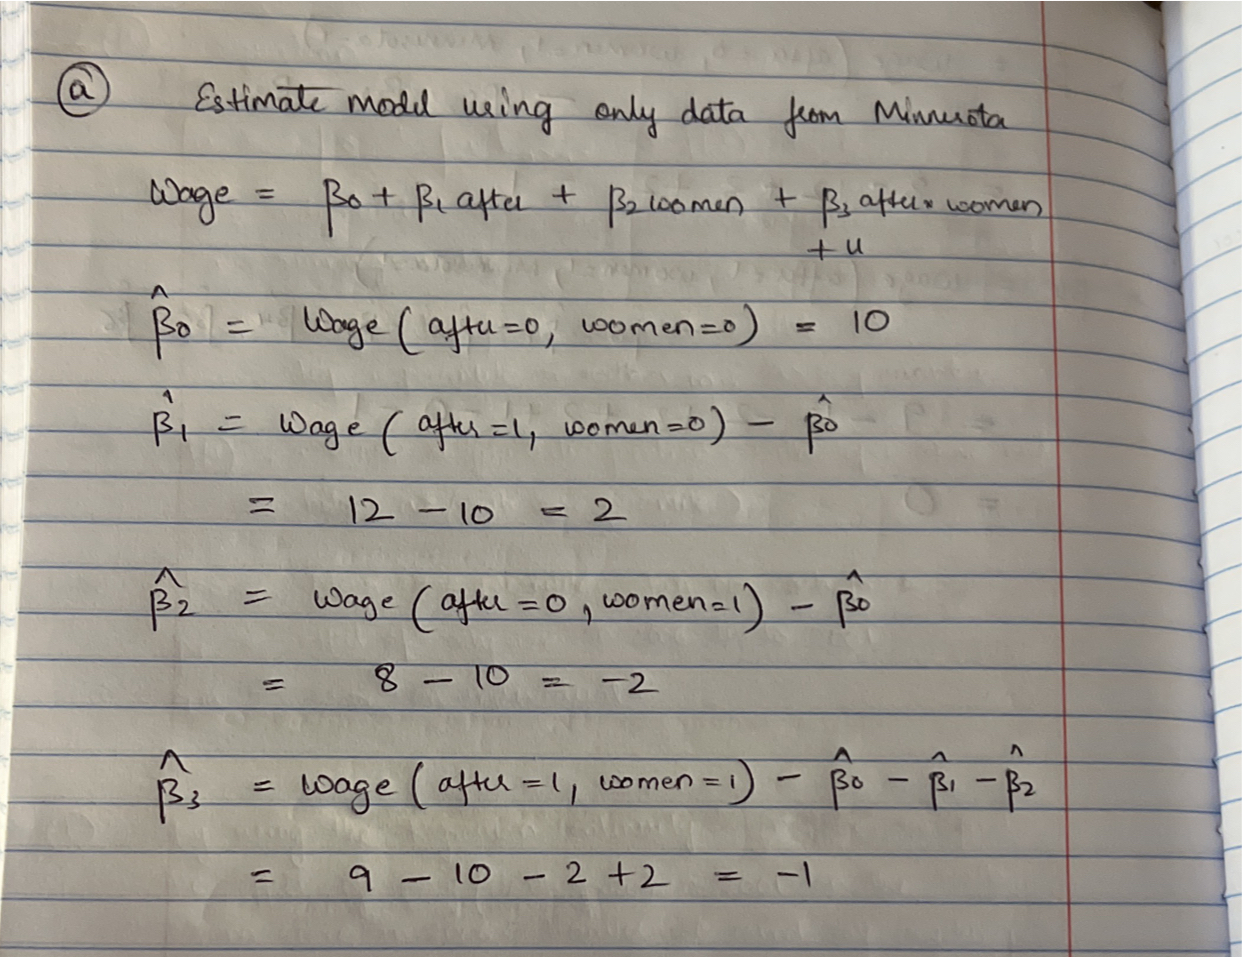 (a) Estimate model using only data from Minnesota
Wage = β0 + β1 after + β2 women + β3 after × women
+ u
β̂0 = Wage ( after=0, women=0 ) = 10
β̂1 = Wage ( after=1, women=0 ) - β̂0
= 12 - 10 = 2
β̂2 = Wage ( after=0, women=1 ) - β̂0
= 8 - 10 = -2
β̂3 = Wage ( after=1, women=1 ) - β̂0 - β̂1 - β̂2
= 9 - 10 - 2 + 2 = -1